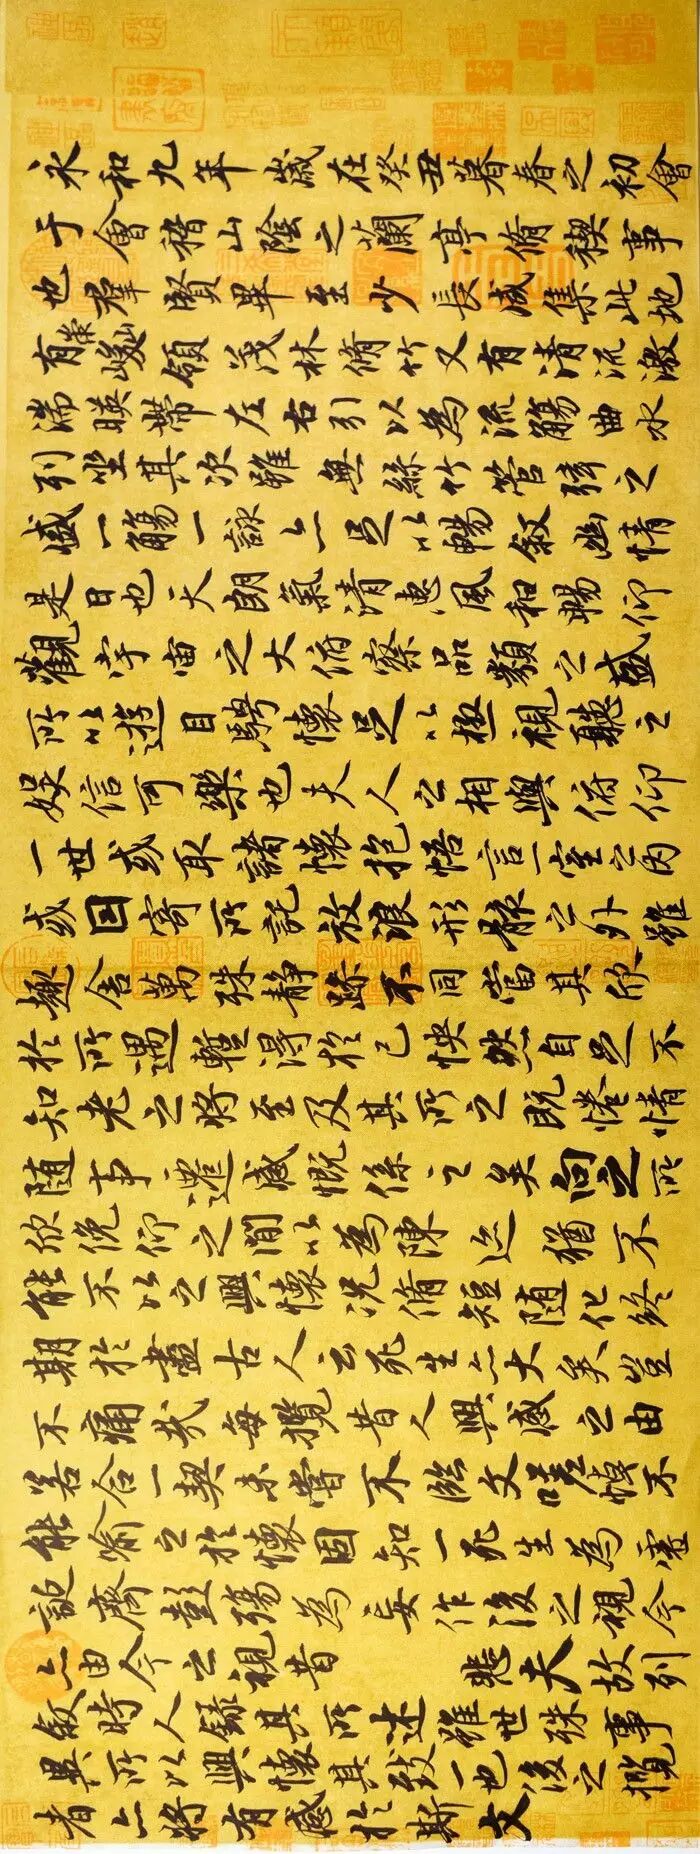 永和九年歲在癸丑暮春之初會
于會稽山陰之蘭亭脩稧事
也羣賢畢至少長咸集此地
有崇山峻領茂林脩竹又有清流激
湍暎帶左右引以為流觴曲水
列坐其次雖無絲竹管弦之
盛一觴一詠亦足以暢敘幽情
是日也天朗氣清惠風和暢仰
觀宇宙之大俯察品類之盛
所以遊目騁懷足以極視聽之
娛信可樂也夫人之相與俯仰
一世或取諸懷抱悟言一室之內
或因寄所託放浪形骸之外雖
趣舍萬殊静躁不同當其欣
於所遇暫得於己怏然自足不
知老之將至及其所之既惓情
随事遷感慨係之矣向之所
欣俛仰之閒以為陳迹猶不
能不以之興懷況脩短随化終
期於盡古人云死生亦大矣豈
不痛哉每攬昔人興感之由
若合一契未嘗不臨文嗟悼不
能喻之於懷固知一死生為虛
誕齊彭殤為妄作後之視今
亦由今之視昔 悲夫故列
敘時人錄其所述雖世殊事
異所以興懷其致一也後之攬
者亦將有感於斯文